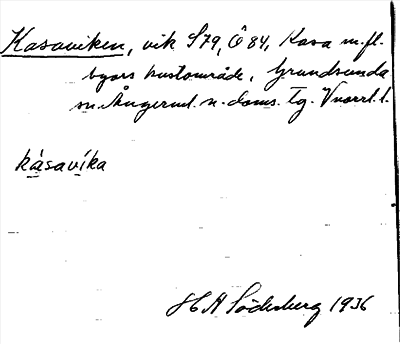 Kasaviken, vik S79, Ö84, Kasa m.fl.
byars kustområde, Grundsunda
sn. Ångerml. n. doms. Tg. Vnorrl. l.
kàsavíka
H A Söderberg 1936